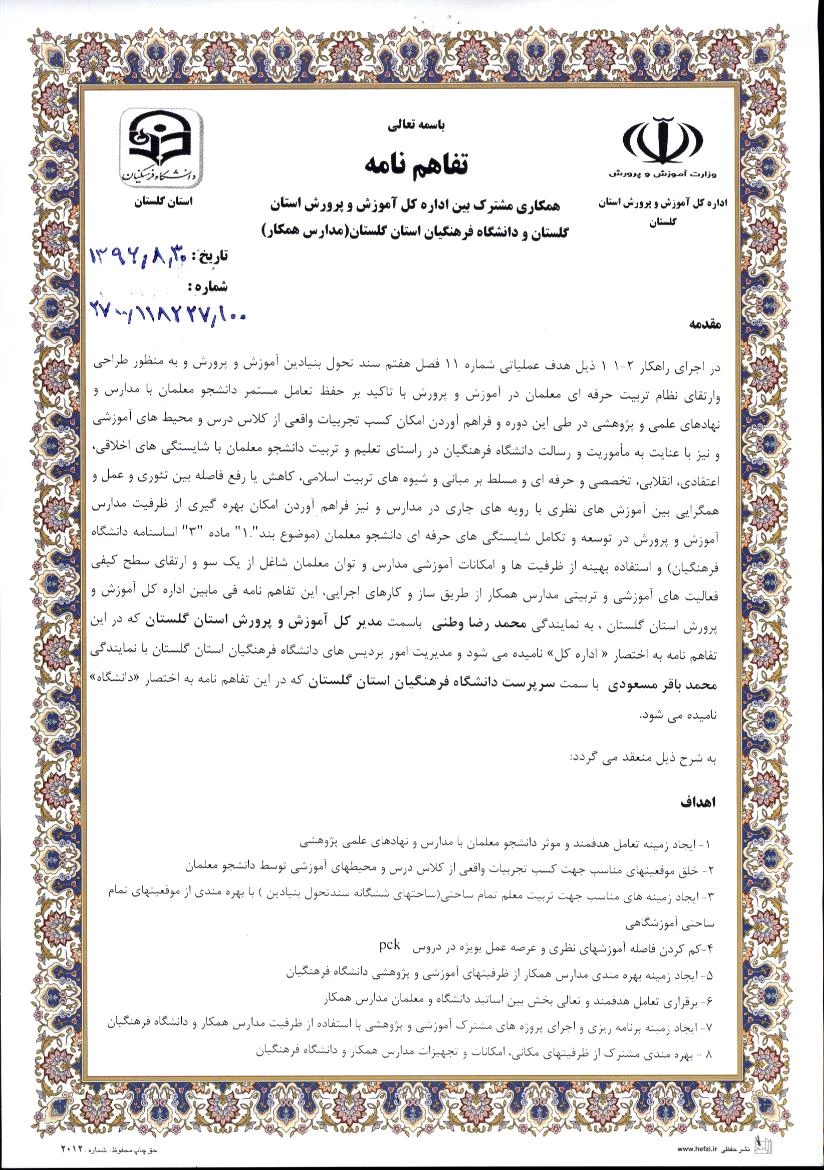 باسمه تعالی
تفاهم نامه
همکاری مشترک بین اداره کل آموزش و پرورش استان
گلستان و دانشگاه فرهنگیان استان گلستان(مدارس همکار)
وزارت آموزش و پرورش
اداره کل آموزش و پرورش استان
گلستان
دانشگاه فرهنگیان
استان گلستان
تاریخ: ۱۳۹۶٫۸٫۳۰
شماره :
۲۷۰۰/۱۱۸۲۲۷٫۱۰۰
مقدمه
در اجرای راهکار ۲-۱۱ ذیل هدف عملیاتی شماره ۱۱ فصل هفتم سند تحول بنیادین آموزش و پرورش و به منظور طراحی
وارتقای نظام تربیت حرفه ای معلمان در آموزش و پرورش با تاکید بر حفظ تعامل مستمر دانشجو معلمان با مدارس و
نهادهای علمی و پژوهشی در طی این دوره و فراهم آوردن امکان کسب تجربیات واقعی از کلاس درس و محیط های آموزشی
و نیز با عنایت به مأموریت و رسالت دانشگاه فرهنگیان در راستای تعلیم و تربیت دانشجو معلمان با شایستگی های اخلاقی،
اعتقادی، انقلابی، تخصصی و حرفه ای و مسلط بر مبانی و شیوه های تربیت اسلامی، کاهش یا رفع فاصله بین تئوری و عمل و
همگرایی بین آموزش های نظری با رویه های جاری در مدارس و نیز فراهم آوردن امکان بهره گیری از ظرفیت مدارس
آموزش و پرورش در توسعه و تکامل شایستگی های حرفه ای دانشجو معلمان (موضوع بند"۱." ماده "۳" اساسنامه دانشگاه
فرهنگیان) و استفاده بهینه از ظرفیت ها و امکانات آموزشی مدارس و توان معلمان شاغل از یک سو و ارتقای سطح کیفی
فعالیت های آموزشی و تربیتی مدارس همکار از طریق ساز و کارهای اجرایی، این تفاهم نامه فی مابین اداره کل آموزش و
پرورش استان گلستان ، به نمایندگی محمد رضا وطنی باسمت مدیر کل آموزش و پرورش استان گلستان که در این
تفاهم نامه به اختصار « اداره کل» نامیده می شود و مدیریت امور بردیس های دانشگاه فرهنگیان استان گلستان با نمایندگی
محمد باقر مسعودی با سمت سرپرست دانشگاه فرهنگیان استان گلستان که در این تفاهم نامه به اختصار «دانشگاه»
نامیده می شود.
به شرح ذیل منعقد می گردد:
اهداف
۱- ایجاد زمینه تعامل هدفمند و موثر دانشجو معلمان با مدارس و نهادهای علمی پژوهشی
۲- خلق موقعیتهای مناسب جهت کسب تجربیات واقعی از کلاس درس و محیطهای آموزشی توسط دانشجو معلمان
۳- ایجاد زمینه های مناسب جهت تربیت معلم تمام ساحتی(ساحتهای ششگانه سندتحول بنیادین ) با بهره مندی از موقعیتهای تمام
ساحتی آموزشگاهی
۴-کم کردن فاصله آموزشهای نظری و عرصه عمل بویژه در دروس pck
۵- ایجاد زمینه بهره مندی مدارس همکار از ظرفیتهای آموزشی و پژوهشی دانشگاه فرهنگیان
۶- برقراری تعامل هدفمند و تعالی بخش بین اساتید دانشگاه و معلمان مدارس همکار
۷- ایجاد زمینه برنامه ریزی و اجرای پروژه های مشترک آموزشی و پژوهشی با استفاده از ظرفیت مدارس همکار و دانشگاه فرهنگیان
۸ - بهره مندی مشترک از ظرفیتهای مکانی، امکانات و تجهیزات مدارس همکار و دانشگاه فرهنگیان
نشر حفظی www.hefzi.ir
حق چاپ محفوظ . شماره : ۲۰۱۲